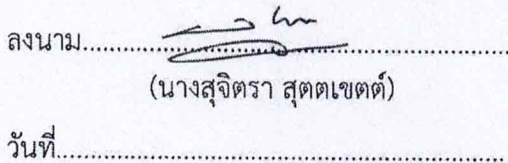 ลงนาม........................................................................
(นางสุจิตรา สุตตเขตต์)
วันที่........................................................................